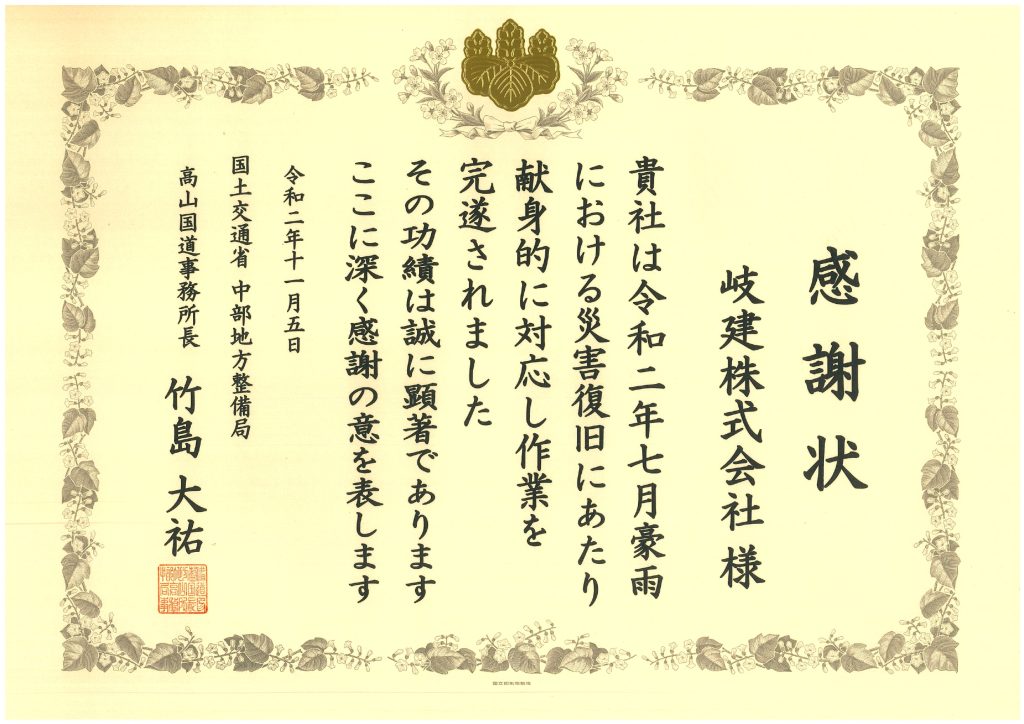 感謝状
岐建株式会社 様
貴社は令和二年七月豪雨
における災害復旧にあたり
献身的に対応し作業を
完遂されました
その功績は誠に顕著であります
ここに深く感謝の意を表します
令和二年十一月五日
国土交通省 中部地方整備局
高山国道事務所長 竹島 大祐